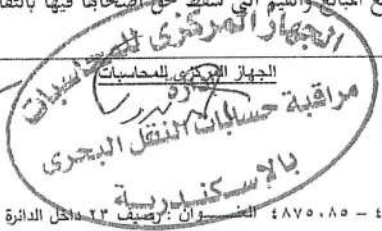 المبالغ والقيم التي سقط حق أصحابها فيها بالتقا
الجهاز المركزى للمحاسبات
الجهاز المركزى للمحاسبات
إدارة
مراقبة حسابات النقل البحرى
بالإسكندرية
٤٨٧٥٠٨٥ - ٤ العنـــوان : رصيف ٢٣ داخل الدائرة